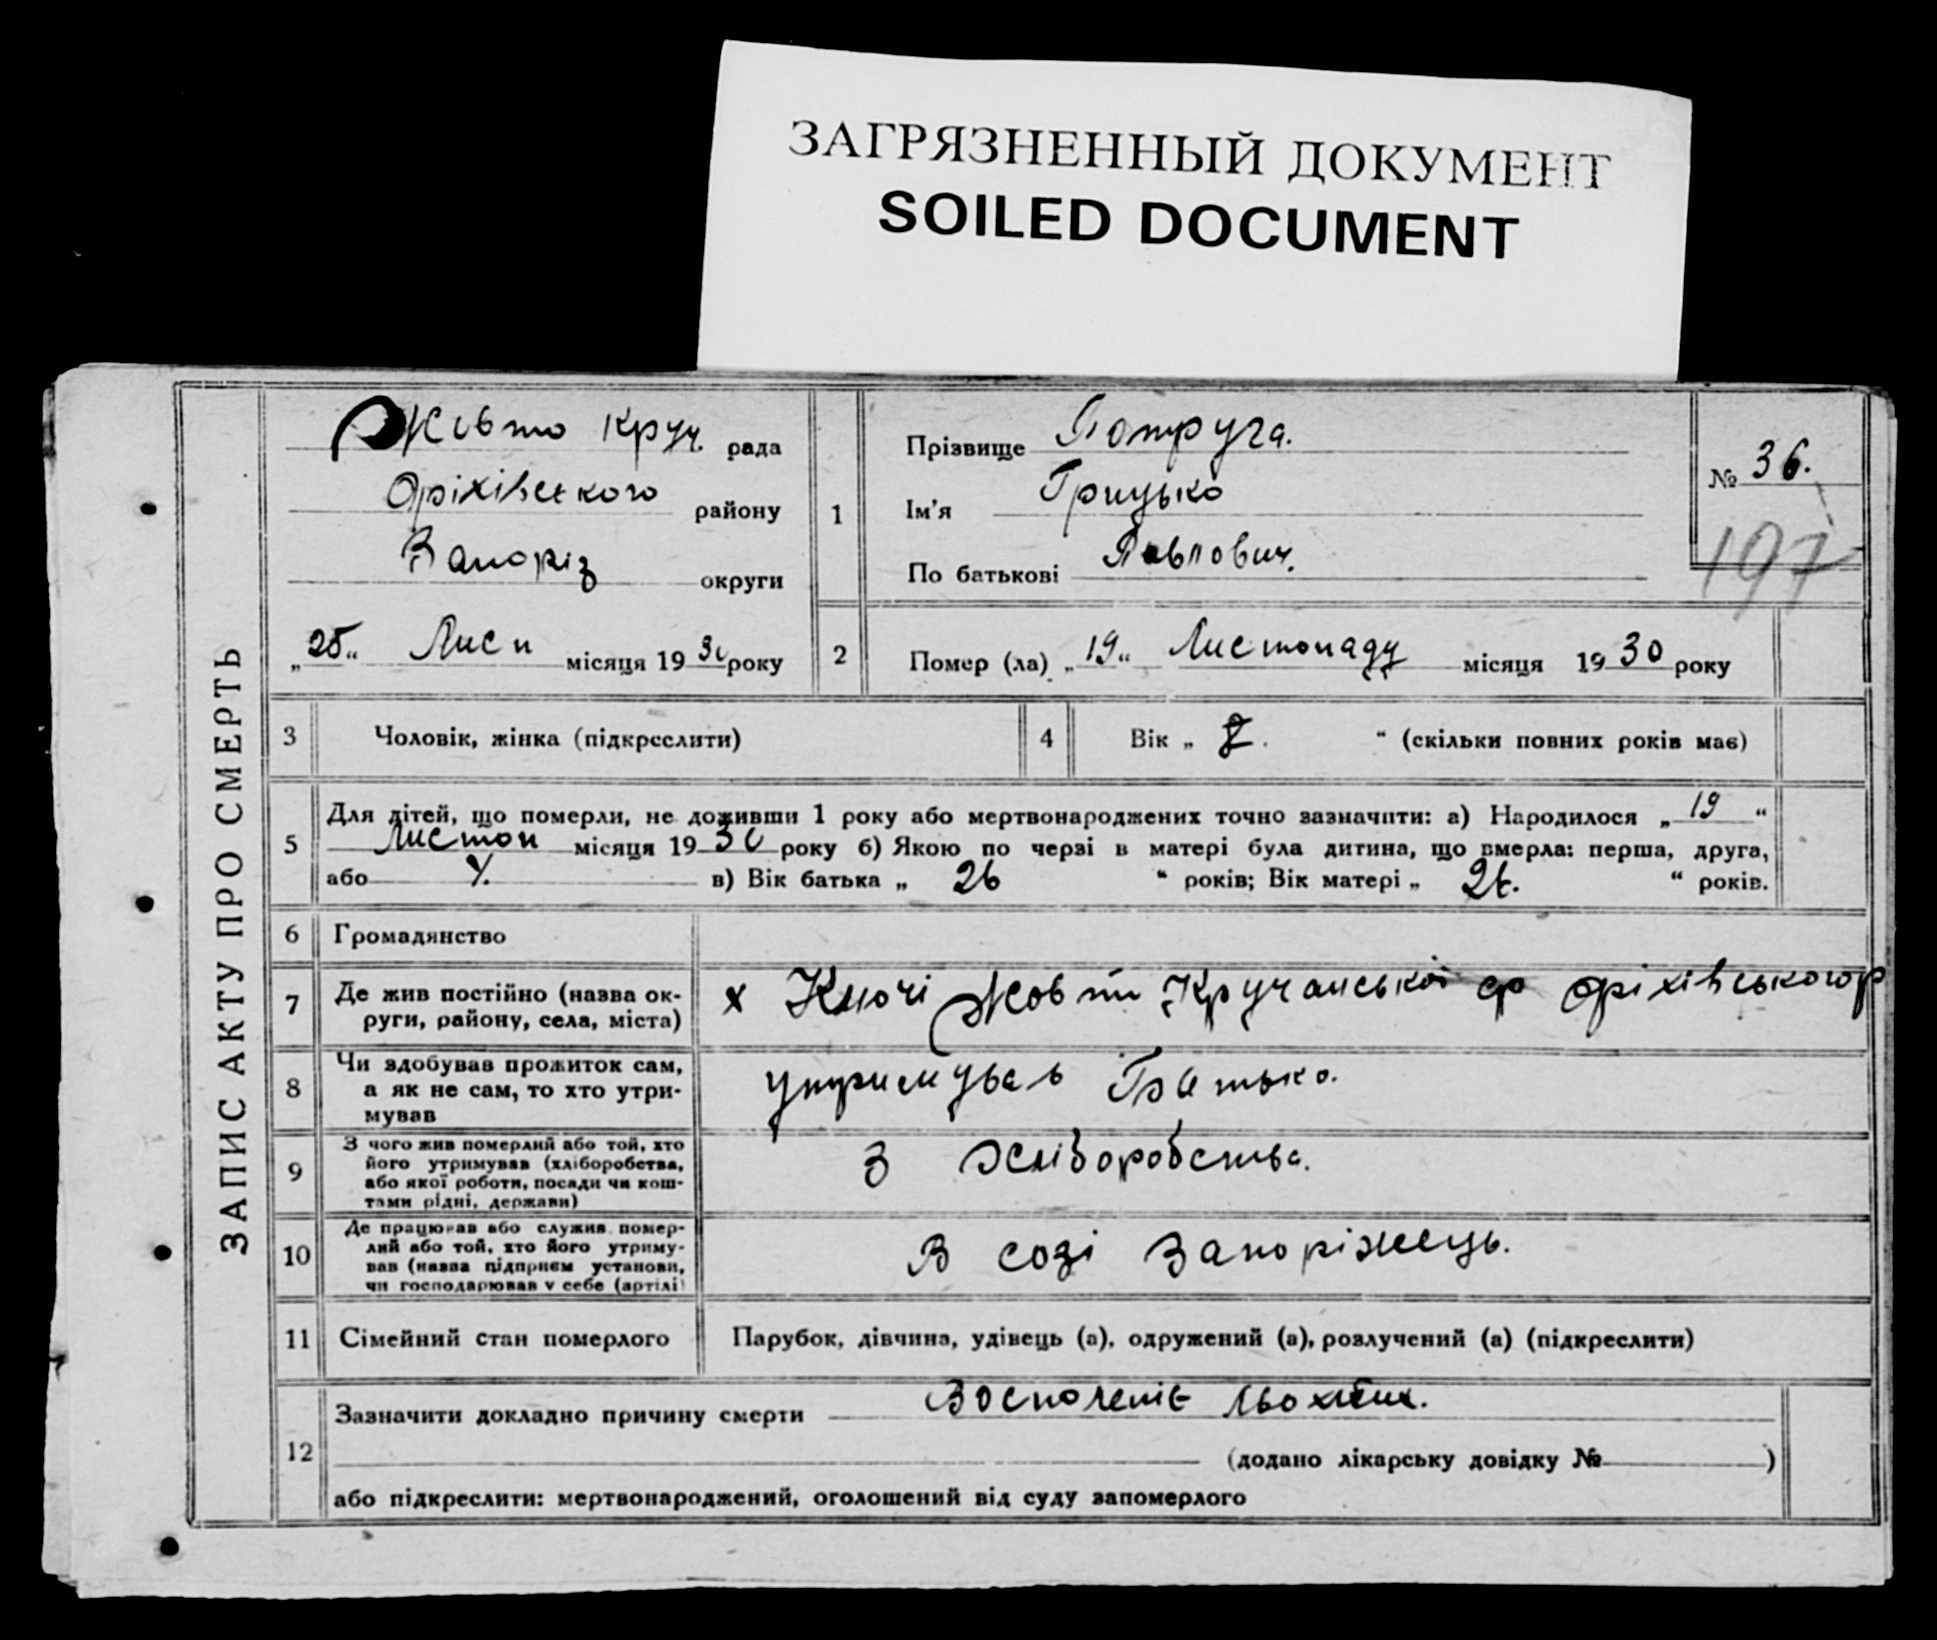 ЗАГРЯЗНЕННЫЙ ДОКУМЕНТ
SOILED DOCUMENT
ЗАПИС АКТУ ПРО СМЕРТЬ
Жовто Круч. рада
Оріхівського району
Запоріз округи
„25“ Лист місяця 1930 року
1
Прізвище Попруга.
Ім'я Грицько
По батькові Павлович.
№ 36.
197
2 Помер (ла) „19“ Листопаду місяця 1930 року
3 Чоловік, жінка (підкреслити)
4 Вік „ “ (скільки повних років має)
5 Для дітей, що померли, не доживши 1 року або мертвонароджених точно зазначити: а) Народилося „19“
Листоп місяця 1930 року б) Якою по черзі в матері була дитина, що вмерла: перша, друга,
або в) Вік батька „26“ років; Вік матері „ “ років.
6 Громадянство
7 Де жив постійно (назва ок-
руги, району, села, міста)
х Ключі Жовто Кручанської ср Оріхівського р
8 Чи здобував прожиток сам,
а як не сам, то хто утри-
мував
утримував Батько.
9 З чого жив померлий або той, хто
його утримував (хліборобства,
або якої роботи, посади чи кош-
тами рідні, держави)
З Хліборобства.
10 Де працював або служив помер-
лий або той, хто його утриму-
вав (назва підприєм установи,
чи господарював у себе (артілі)
В созі Запоріжець.
11 Сімейний стан померлого
Парубок, дівчина, удівець (а), одружений (а), розлучений (а) (підкреслити)
12 Зазначити докладно причину смерти Восполеніє Льохких.
(додано лікарську довідку № )
або підкреслити: мертвонароджений, оголошений від суду запомерлого